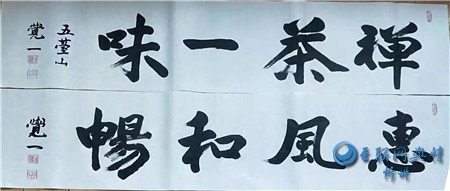 禅茶一味
五臺山
覺一
惠風和暢
覺一